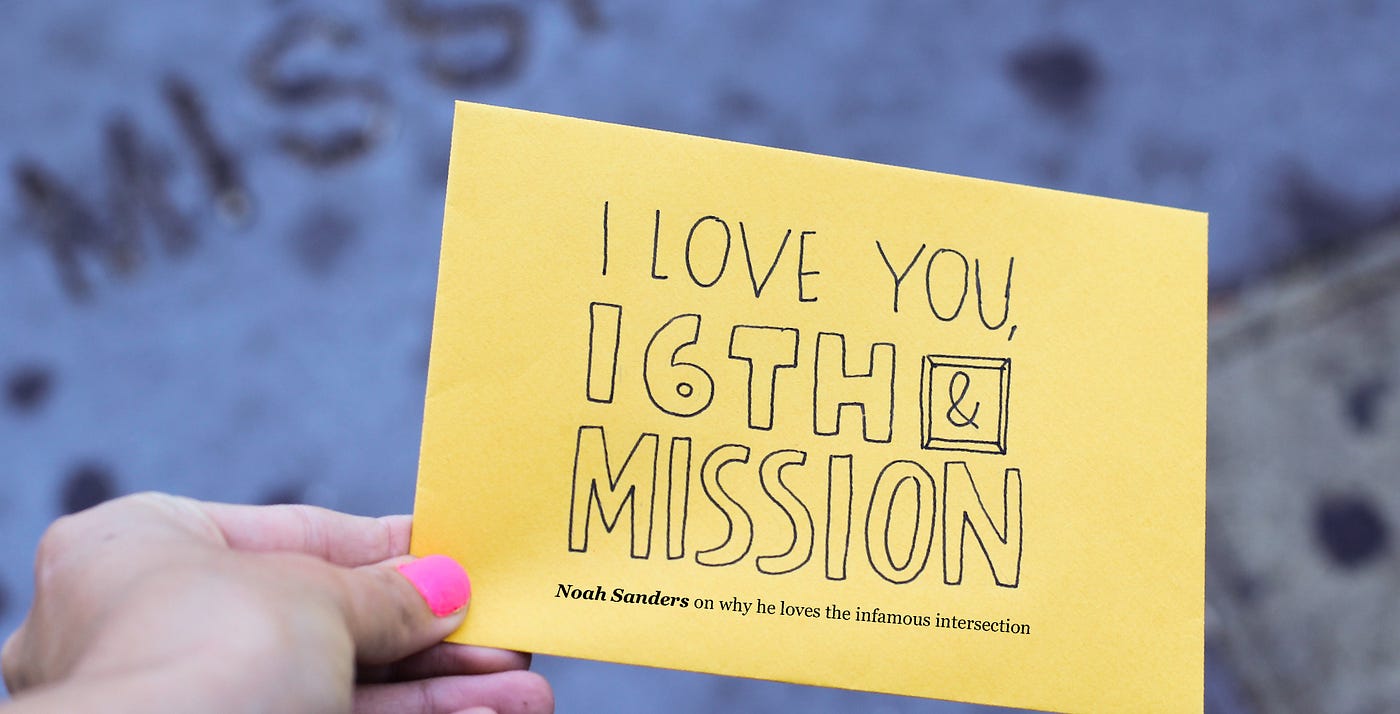 MISS
I LOVE YOU,
16TH &
MISSION
Noah Sanders on why he loves the infamous intersection